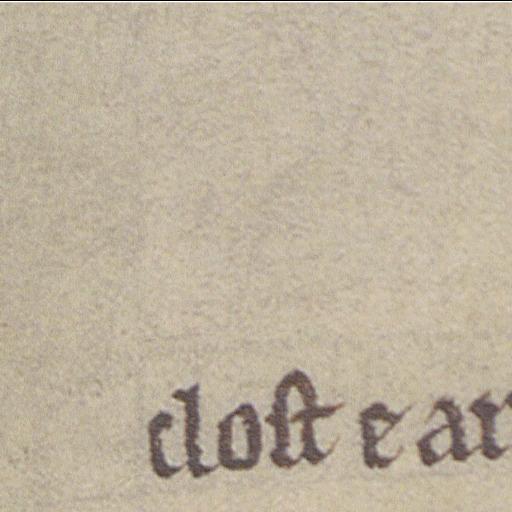 cloſt e ar